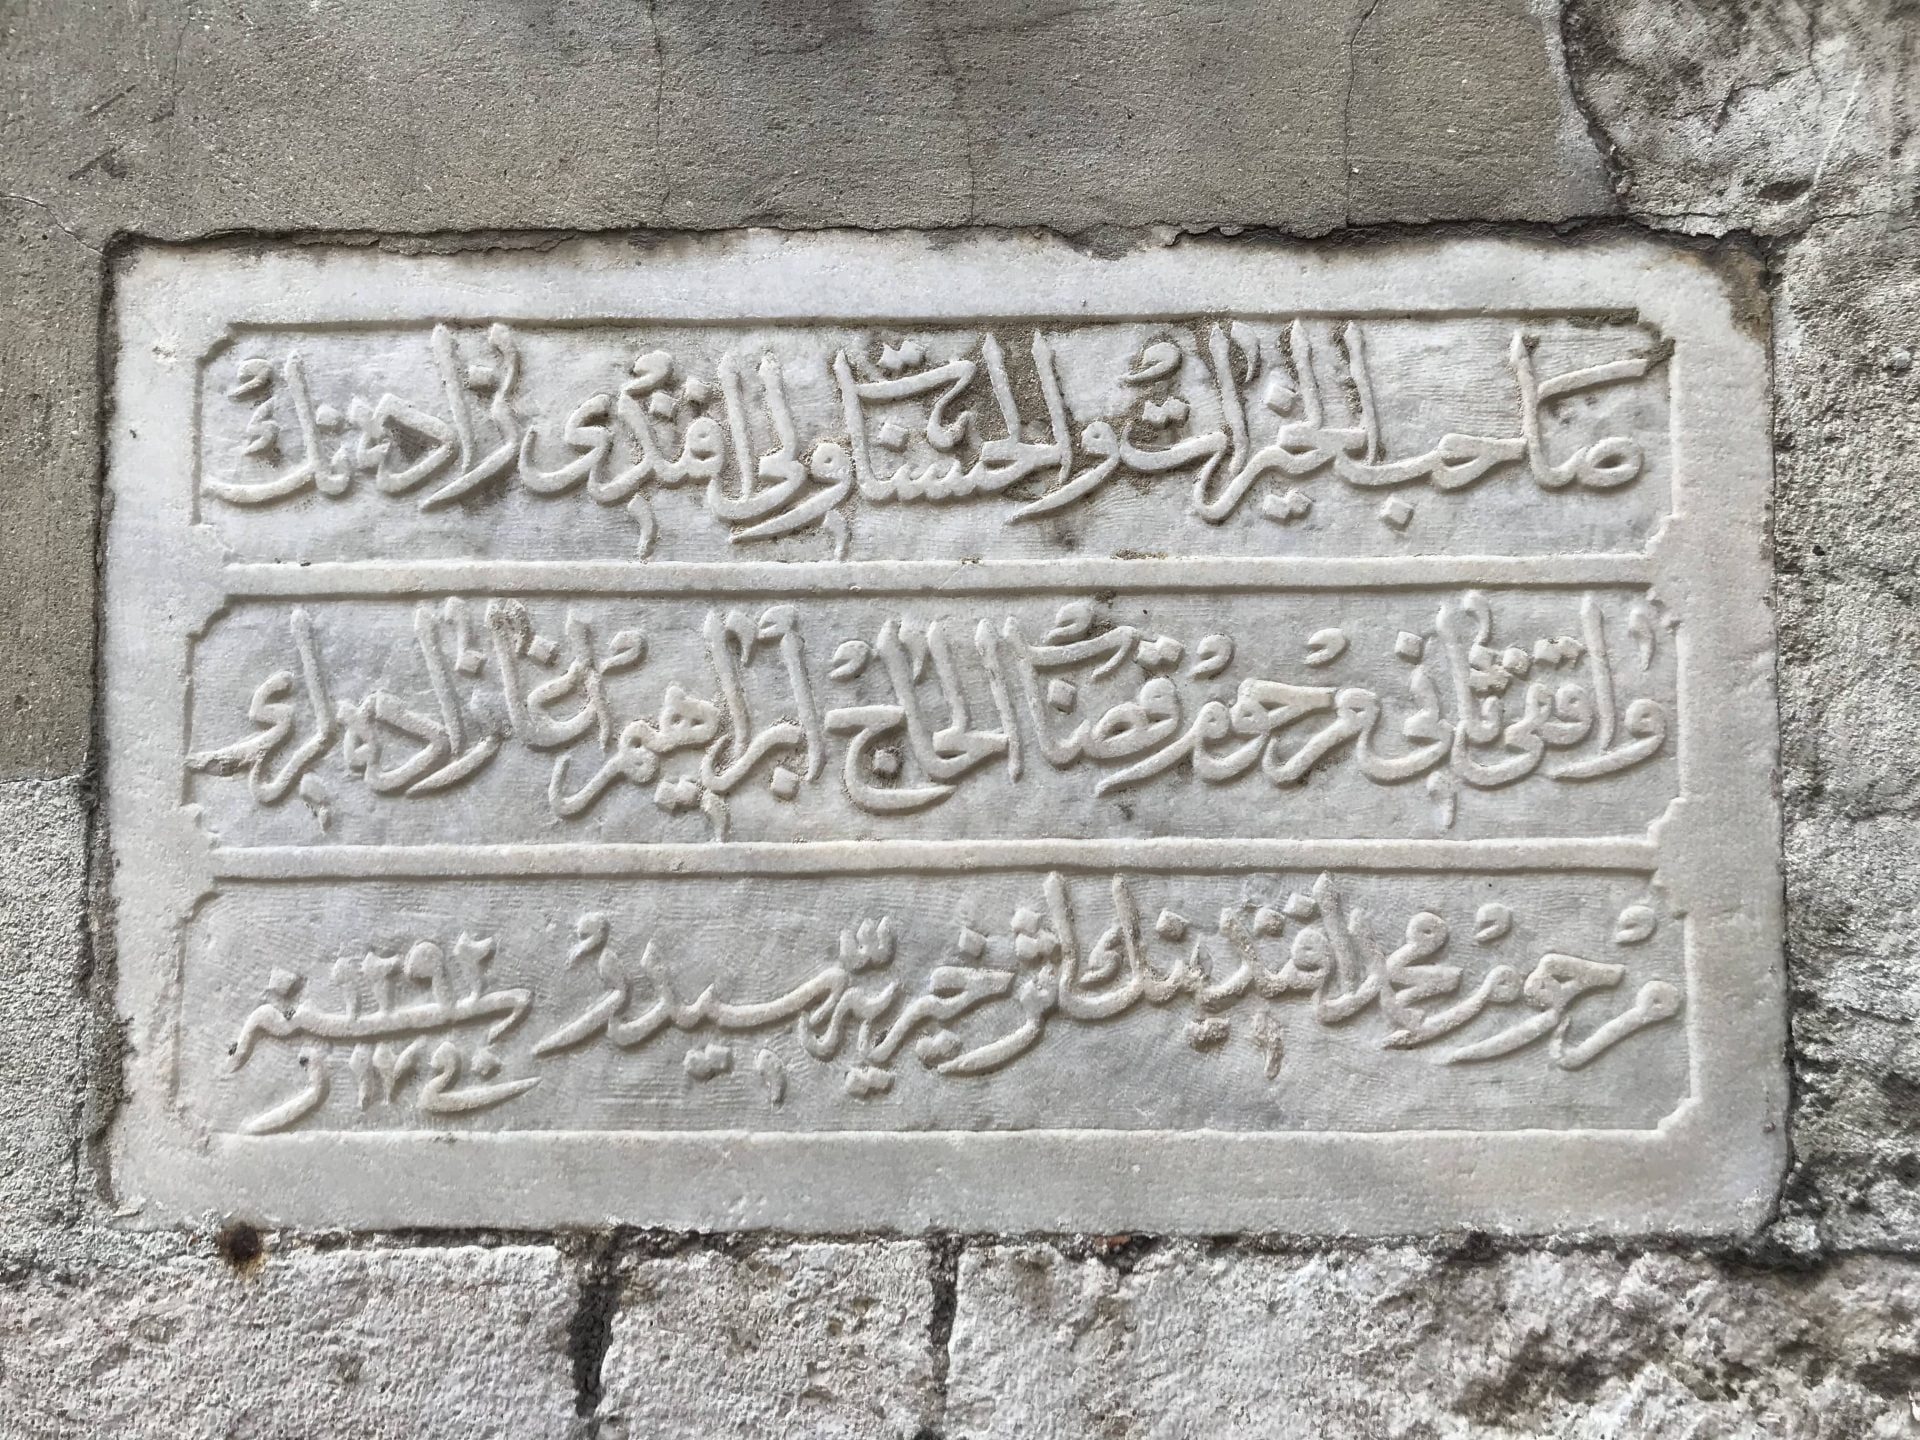 صاحب الخيرات والحسنات ولى افندى زاده نك
واقف ثانى مرحوم قصاب الحاج ابراهيم اغا زاده لرى
مرحوم محمد افندينك اثر خيريه سيدر سنه ١٢٩٢
فى ١٧ ر